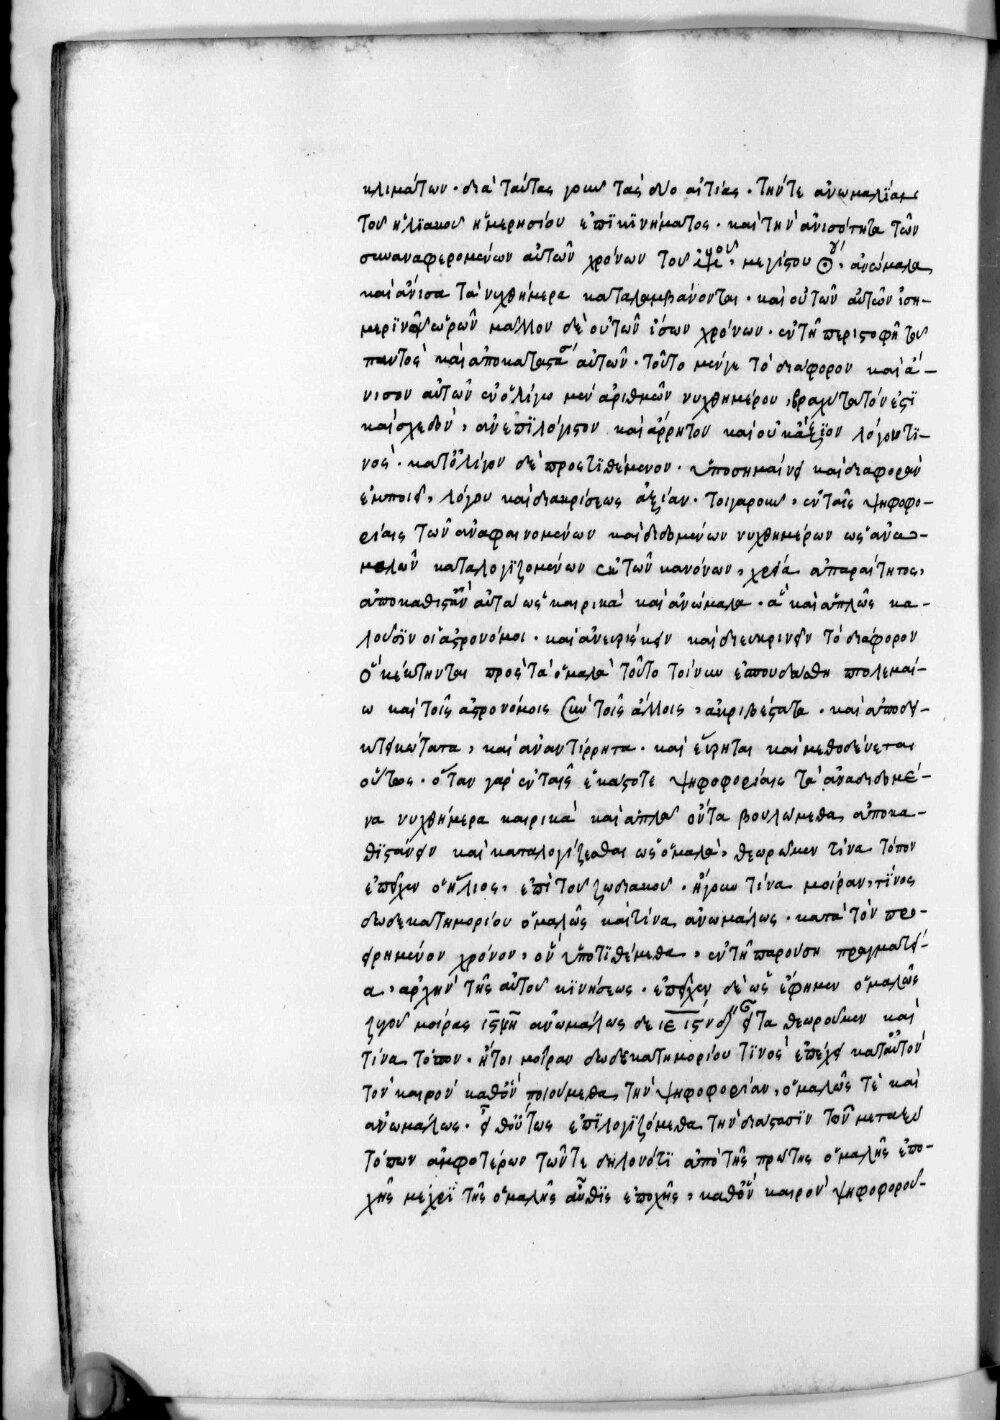 κλιμάτων· διὰ ταύτας γοῦν τὰς δύο αἰτίας· τήν τε ἀνωμαλίαν
τοῦ ἡλιακοῦ ἡμερησίου ἐπικινήματος· καὶ τὴν ἀνισότητα τῶν
συναναφερομένων αὐτῶν χρόνων τοῦ μεγίστου ἀνώμαλα
καὶ ἄνισα τὰ νυχθήμερα καταλαμβάνονται· καὶ οὐ τῶν αὐτῶν ἰση-
μερινῶν ὡρῶν μᾶλλον δὲ οὐ τῶν ἴσων χρόνων· ἐν τῇ περιστροφῇ τοῦ
παντὸς καὶ ἀποκαταστά αὐτῶν· τοῦτο μέν γε τὸ διάφορον καὶ ἄ-
νισον αὐτῶν ἐν ὀλίγω μὲν ἀριθμῶν νυχθημέρου, βραχύτατόν ἐστι
καὶ σχεδὸν, ἀνεπιλόγιστον καὶ ἄρρητον καὶ οὐκ ἄξιον λόγου τι-
νός· κατολίγον δὲ προστιθέμενον· ὑποσημαίνει καὶ διαφορὰν
ἐμποιεῖ, λόγου καὶ διακρίσεως ἀξίαν· τοιγαροῦν, ἐν ταῖς ψηφοφο-
ρίαις τῶν ἀναφαινομένων καὶ διδομένων νυχθημέρων ὡς ἀνω-
μαλῶν καταλογιζομένων ἐκ τῶν κανόνων, χρεία ἀπαραίτητος,
ἀποκαθιστᾶν αὐτὰ ὡς καιρικὰ καὶ ἀνώμαλα· ἃ καὶ ἁπλῶς κα-
λοῦσιν οἱ ἀστρονόμοι· καὶ ἀνευρίσκειν καὶ διευκρινεῖν τὸ διάφορον
ὃ κέκτηνται πρὸς τὰ ὁμαλὰ τοῦτο τοίνυν ἐσπουδάσθη πολεμαί-
ω καὶ τοῖς ἀστρονόμοις σὺν τοῖς ἄλλοις, ἀκριβέστατα· καὶ ἀποδει-
κτικώτατα, καὶ ἀναντίρρητα· καὶ εὕρηται καὶ μεθοδεύεται
οὕτως· ὅταν γὰρ ἐν ταῖς ἑκάστοτε ψηφοφορίαις τὰ ἀναδιδομέ-
να νυχθήμερα καιρικὰ καὶ ἁπλᾶ ὄντα βουλώμεθα ἀποκα-
θιστάνειν καὶ καταλογίζεσθαι ὡς ὁμαλά, θεωροῦμεν τίνα τόπον
ἐπεῖχεν ὁ ἥλιος, ἐπὶ τοῦ ζωδιακοῦ· ἤγουν τίνα μοίραν, τίνος
δωδεκατημορίου ὁμαλῶς καὶ τίνα ἀνωμάλως· κατὰ τὸν προ-
ειρημένον χρόνον, ὃν ὑποτιθέμεθα, ἐν τῇ παρούση πραγματεί-
α, ἀρχὴν τῆς αὐτοῦ κινήσεως· ἐπεῖχεν δὲ ὡς ἔφημεν ὁμαλῶς
ζυγοῦ μοίρας ἀνωμάλως δὲ εἶτα θεωροῦμεν καὶ
τίνα τόπον· ἤτοι μοῖραν δωδεκατημορίου τινὸς ἐπέχει κατ' αὐτὸν
τὸν καιρὸν καθ' ὃν ποιούμεθα τὴν ψηφοφορίαν, ὁμαλῶς τὲ καὶ
ἀνωμάλως· εἶθ' οὕτως ἐπιλογιζόμεθα τὴν διάστασιν τῶν μεταξὺ
τόπων ἀμφοτέρων τῶν τε δηλονότι ἀπὸ τῆς πρώτης ὁμαλῆς ἐπο-
χῆς μέχρι τῆς ὁμαλῆς αὖθις ἐποχῆς, καθ' ὃν καιρὸν ψηφοφοροῦ-